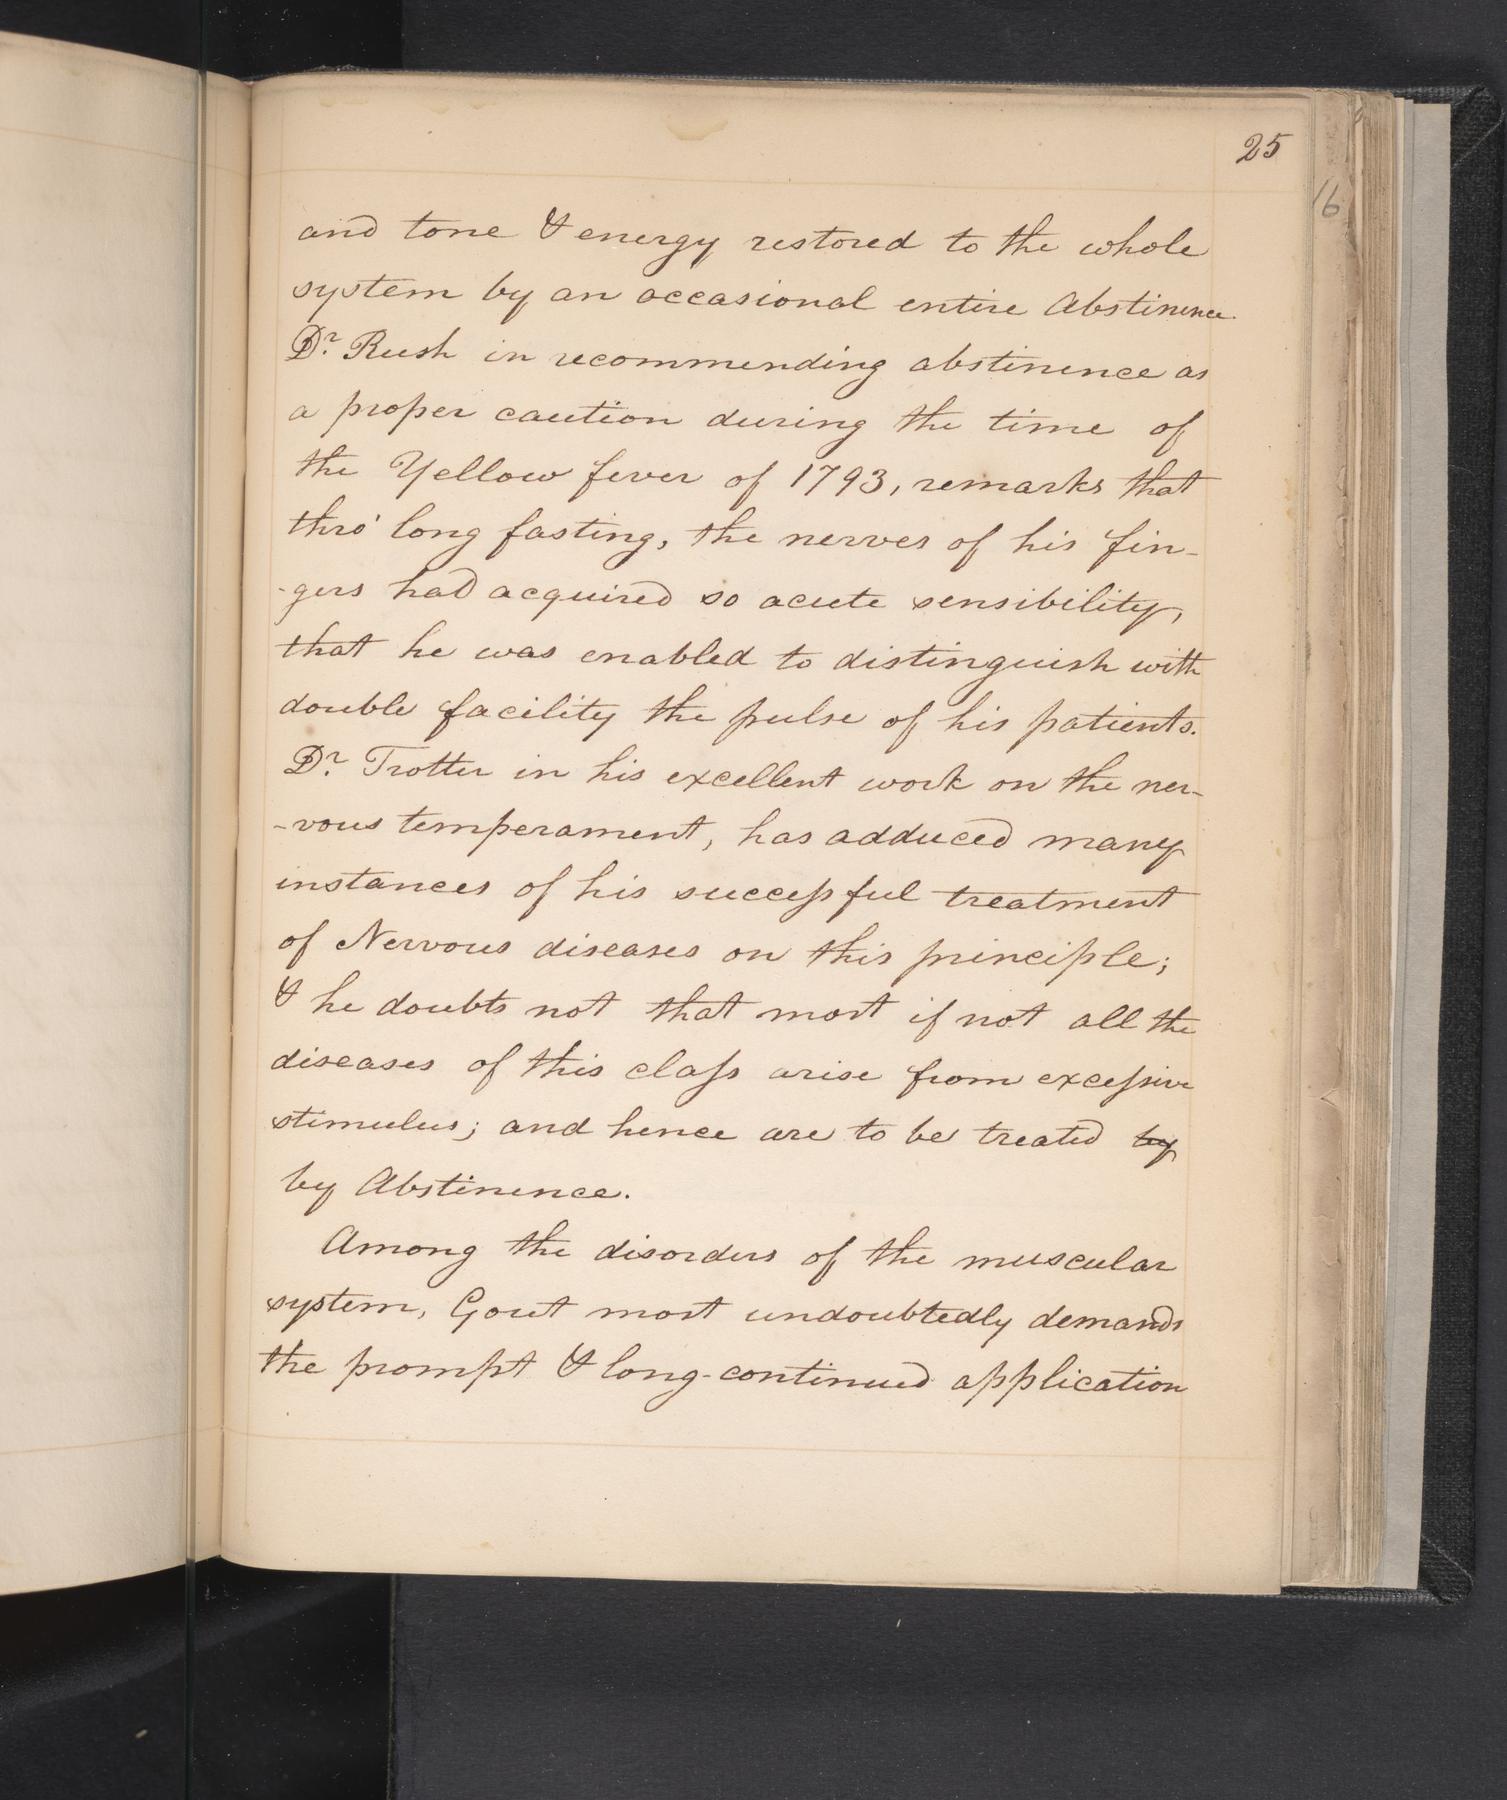 25
16
and tone & energy restored to the whole
system by an occasional entire Abstinence
Dr. Rush in recommending abstinence as
a proper caution during the time of
the Yellow fever of 1793, remarks that
thro' long fasting, the nerves of his fin-
-gers had acquired so acute sensibility,
that he was enabled to distinguish with
double facility the pulse of his patients.
Dr. Trotter in his excellent work on the ner-
-vous temperament, has adduced many
instances of his successful treatment
of Nervous diseases on this principle;
& he doubts not that most if not all the
diseases of this class arise from excessive
stimulus; and hence are to be treated by
by Abstinence.
Among the disorders of the muscular
system, Gout most undoubtedly demands
the prompt & long-continued application